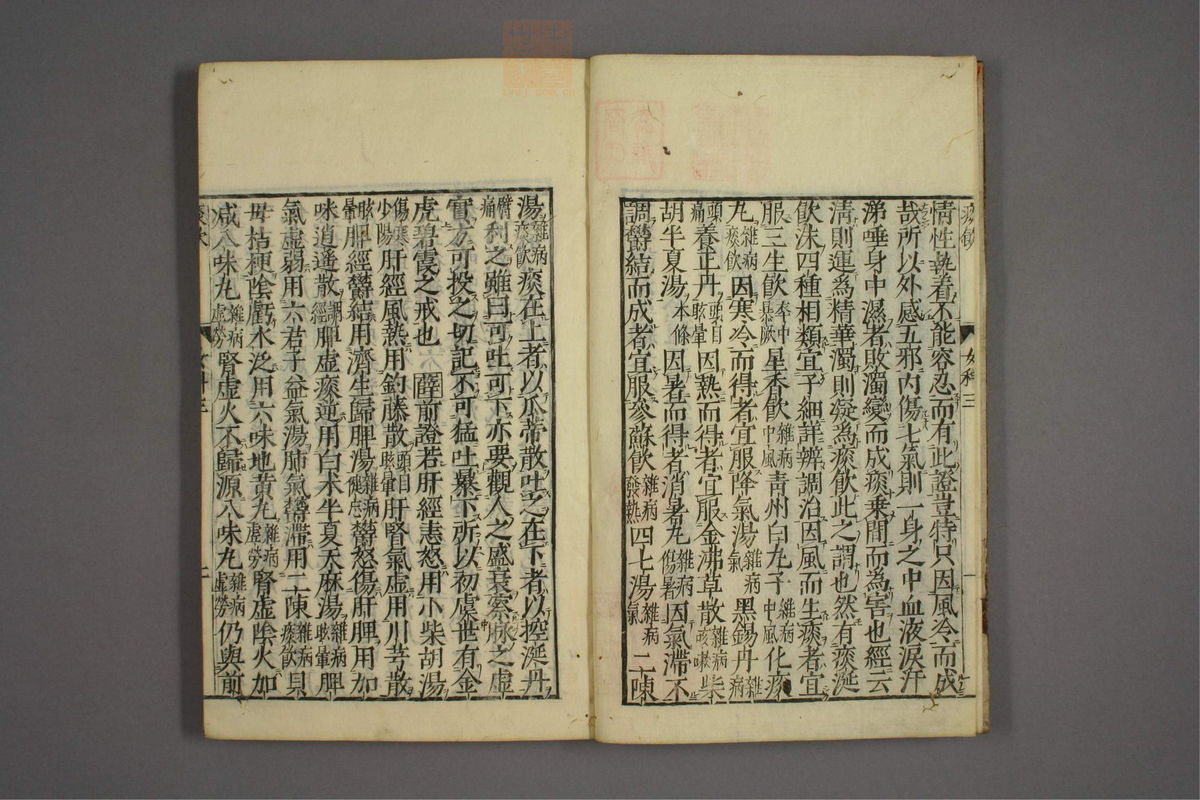 情性執着不能容忍而有此證豈特只因風冷而成
哉所以外感五邪内傷七氣則一身之中血液淚汗
涕唾身中濕者敗濁變而成痰乗間而為害也經云
清則運爲精華濁則凝為痰飲此之謂也然有痰涎
飲沫四種相類宜子細詳辨調治因風而生痰者宜
服三生飲卒中暴厥星香飲雜病中風青州白丸子雜病中風化痰
丸雜病痰飲因寒冷而得者宜服降氣湯雜病氣黒錫丹雜病
頭痛養正丹頭目眩暈因熱而得者宜服金沸草散雜病咳嗽柴
胡半夏湯本條因暑而得者消暑丸雜病傷暑因氣滯不
調欝結而成者宜服參蘇飲雜病發熱四七湯雜病氣二陳
湯雜病痰飲痰在上者以瓜蒂散吐之在下者以控涎丹
臂痛利之雖曰可吐可下亦要觀人之盛衰察脉之虚
實方可投之切記不可猛吐暴下所以初虞世有金
虎碧霞之戒也 薛前證若肝經恚怒用小柴胡湯
傷寒少陽肝經風熱用釣藤散頭目眩暈肝腎氣虚用川芎散
眩暈脾經欝結用濟生歸脾湯雜病健忘欝怒傷肝脾用加
味逍遙散調經脾虚痰逆用白术半夏天麻湯雜病眩暈脾
氣虚弱用六君子益氣湯肺氣欝滯用二陳雜病痰飲貝
母桔梗陰虧水泛用六味地黄丸雜病虚勞腎虚陰火加
减八味丸雜病虚勞腎虚火不歸源八味丸雜病虚勞仍與前